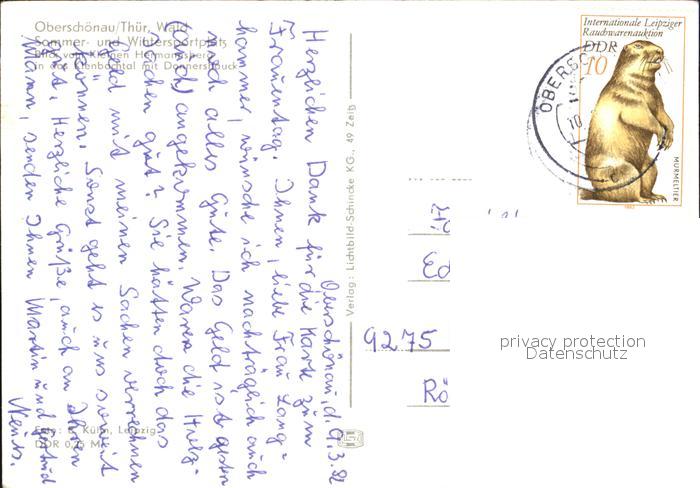 Oberschönau/Thür. Wald
Sommer- und Wintersportplatz
Blick vom Kleinen Hermannsberg
in das Kienbachtal mit Donnershauck
Oberschönau, d. 9.3.82
Herzlichen Dank für die Karte zum
Frauentag. Ihnen, liebe Frau Lang-
hammer, wünsche ich nachträglich auch
noch alles Gute. Das Geld ist gestern
angekommen. Waren die Holz-
sachen gut? Sie hätten doch das
Geld mit meinen Sachen verrechnen
können. Sonst geht es uns soweit
gut. Herzliche Grüße, auch an Ihren
Mann, senden Ihnen Martin und
Foto: Kühn, Leipzig
DDR 0,25 M
Verlag: Lichtbild-Schincke KG., 49 Zeitz
Internationale Leipziger
Rauchwarenauktion
DDR
10
MURMELTIER
1982
OBERSC
9275
Rö
privacy protection
Datenschutz